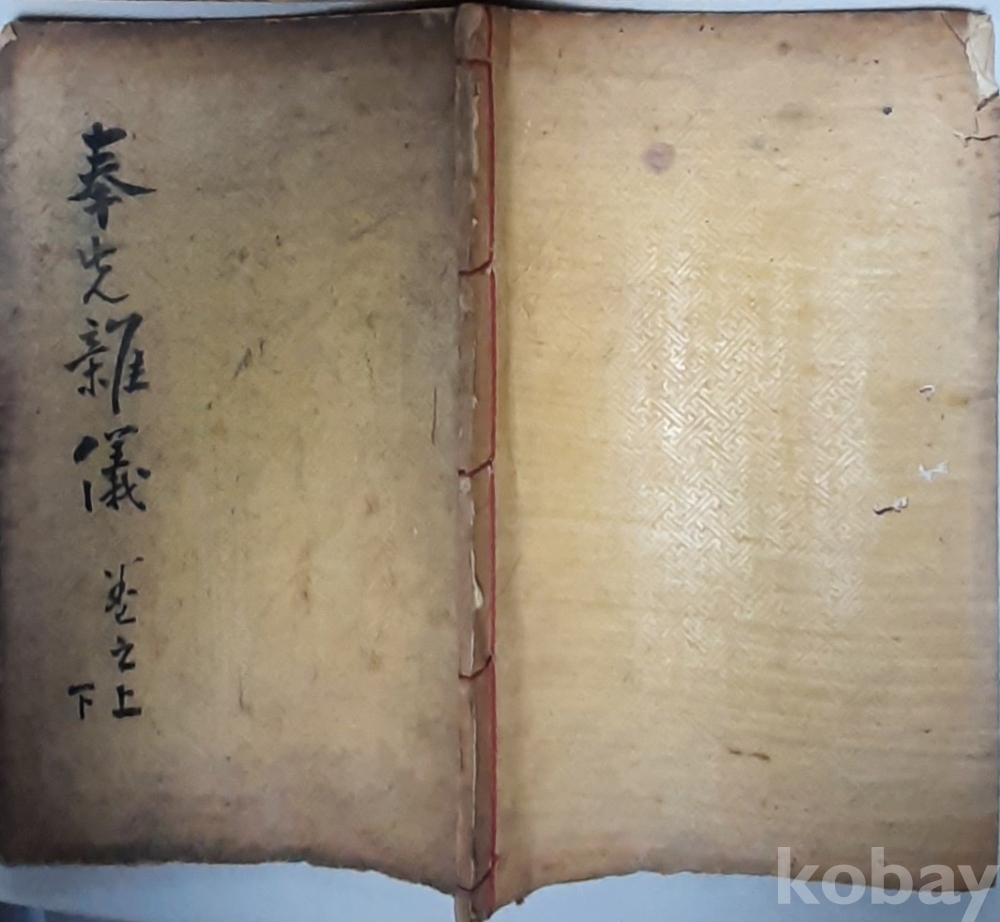 奉先雜儀 卷之上
下
kobay